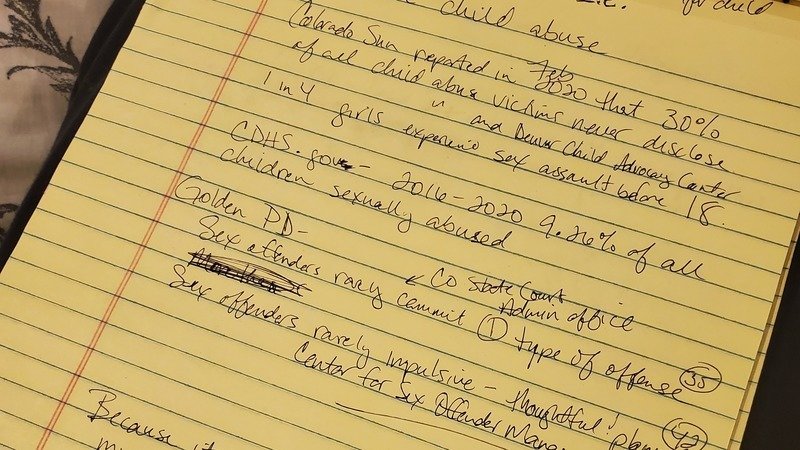 for child
child abuse
Colorado Sun reported in Feb 2020 that 30%
of all child abuse victims never disclose
" and Denver Child Advocacy Center
1 in 4 girls experience sex assault before 18.
CDHS.gov - 2016-2020 9.26% of all
children sexually abused
Golden PD-
Sex offenders rarely commit ① type of offense 35
← CO State Court
Admin office
Sex offenders rarely impulsive - thoughtful! plan
42
Center for Sex Offender Mana
Because it